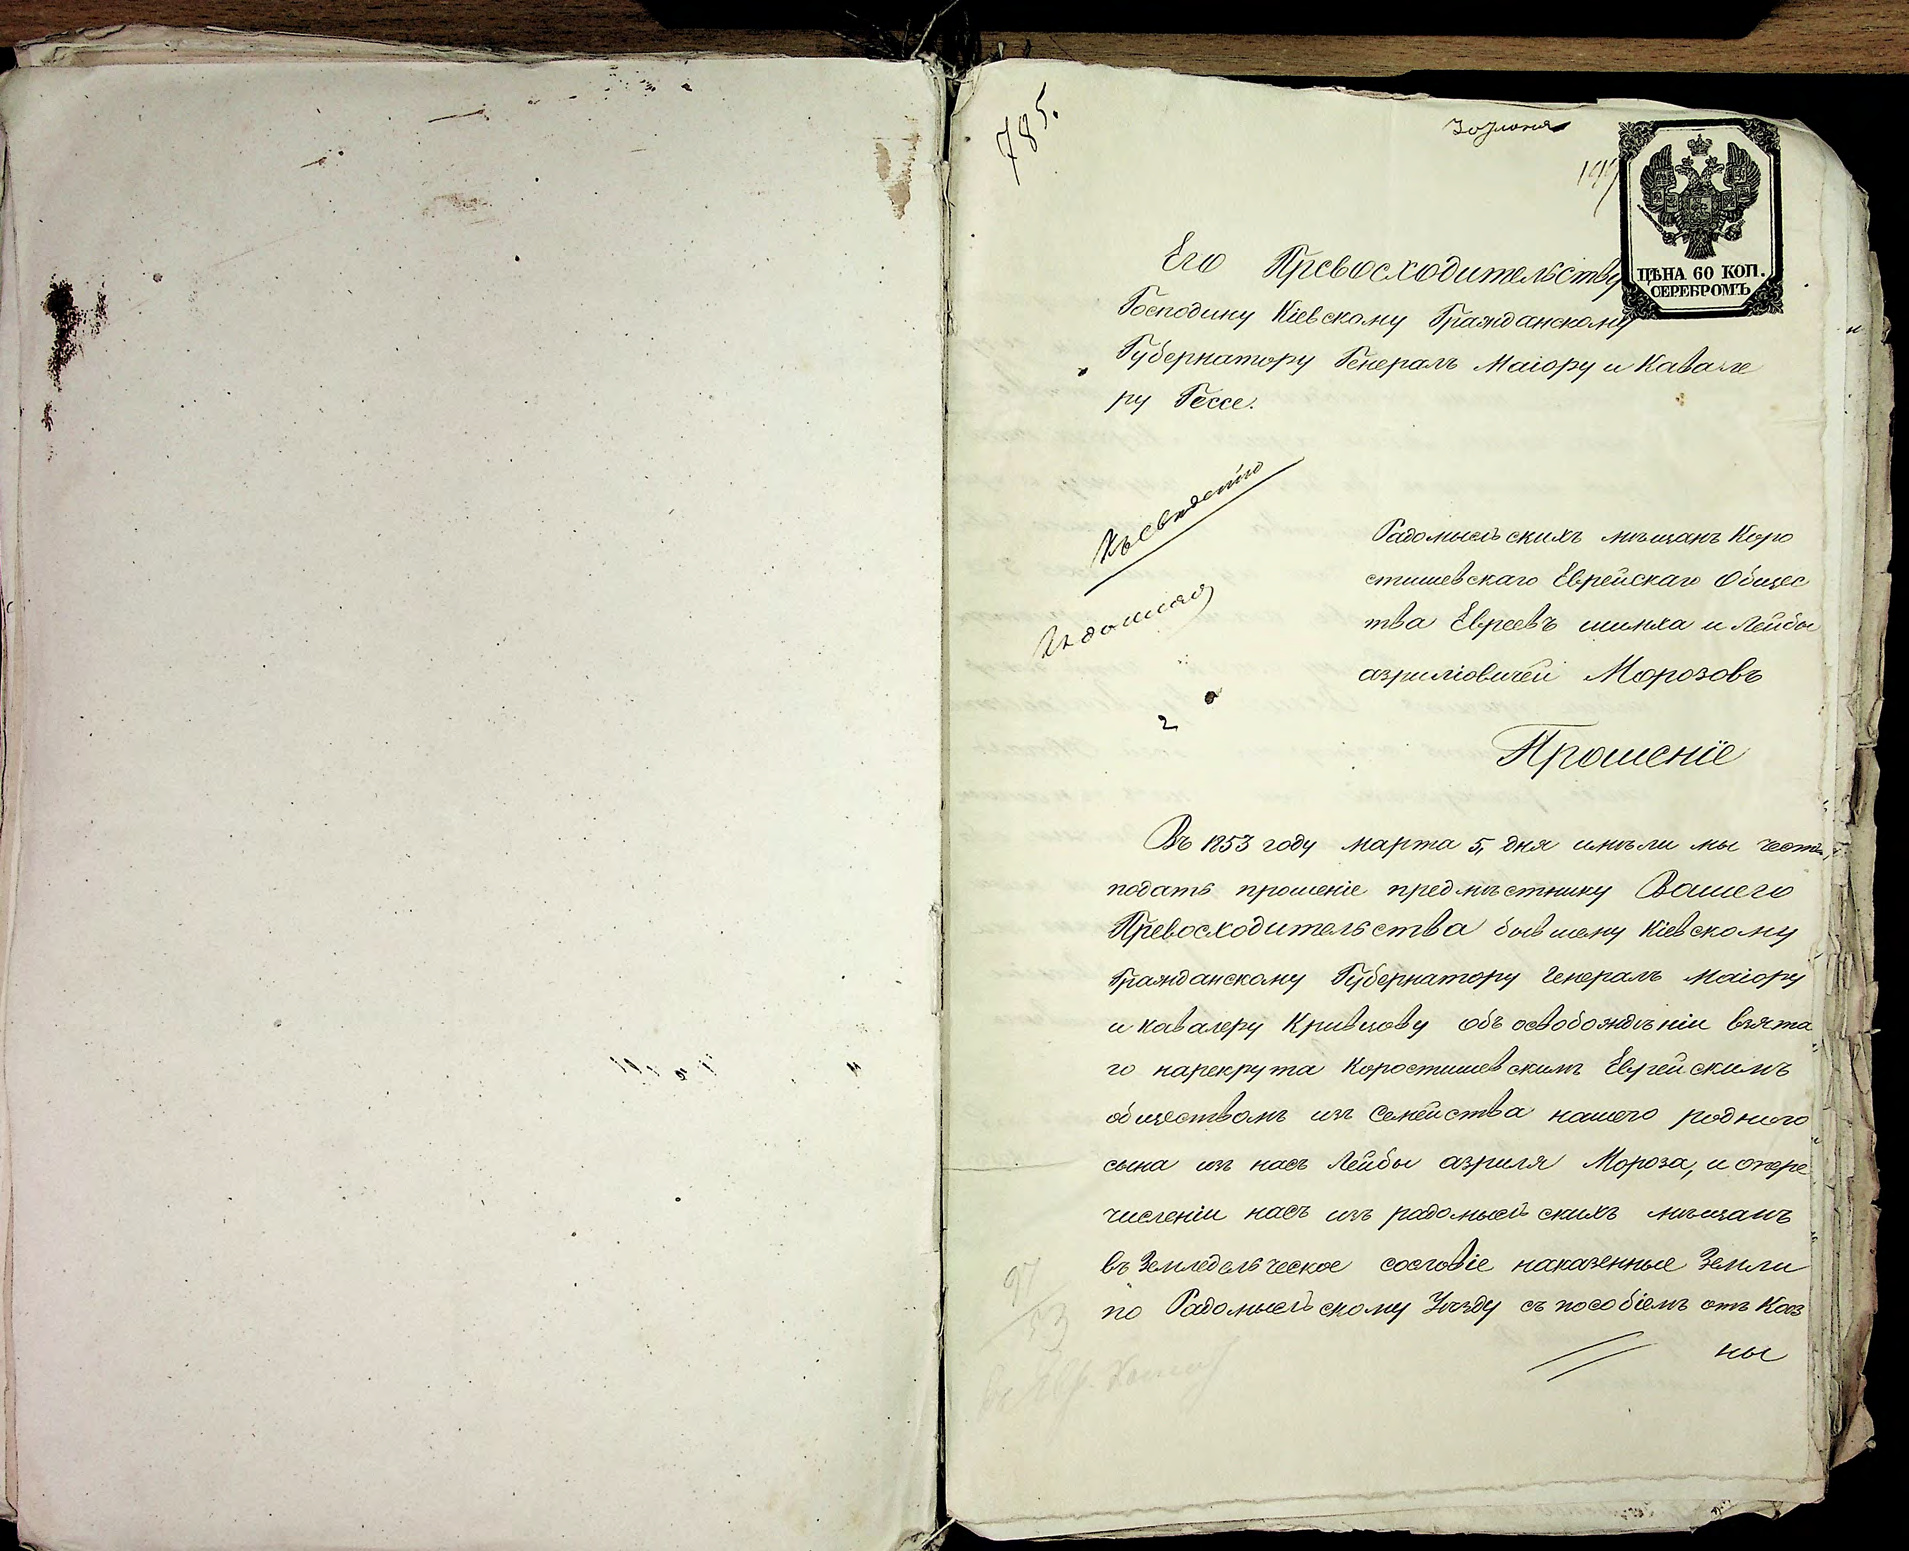 785.
30 Июня
ЦѢНА 60 КОП.
СЕРЕБРОМЪ
Его Превосходительству
Господину Кіевскому Гражданскому
Губернатору Генералъ Маіору и Кавале
ру Гессе.
Къ свѣденію
Къ докладу
2
Радомысльскихъ мѣщанъ Коро
стишевскаго Еврейскаго Общес
тва Евреевъ шимха и Лейбы
азриліовичей Морозовъ
Прошеніе
Въ 1853 году марта 5, дня имѣли мы честь,
подать прошеніе предмѣстнику Вашего
Превосходительства бывшему Кіевскому
Гражданскому Губернатору Генералъ Маіору
и кавалеру Кривцову объ освобожденіи взята
го нарекрута Коростишевскимъ Еврейскимъ
обществомъ изъ семейства нашего роднаго
сына изъ насъ Лейбы азриля Мороза, и опере
численіи насъ изъ радомысльскихъ мѣщанъ
въ Земледельческое сословіе наказенные Земли
по Радомысльскому Уѣзду съ пособіемъ отъ Каз
ны
97
53